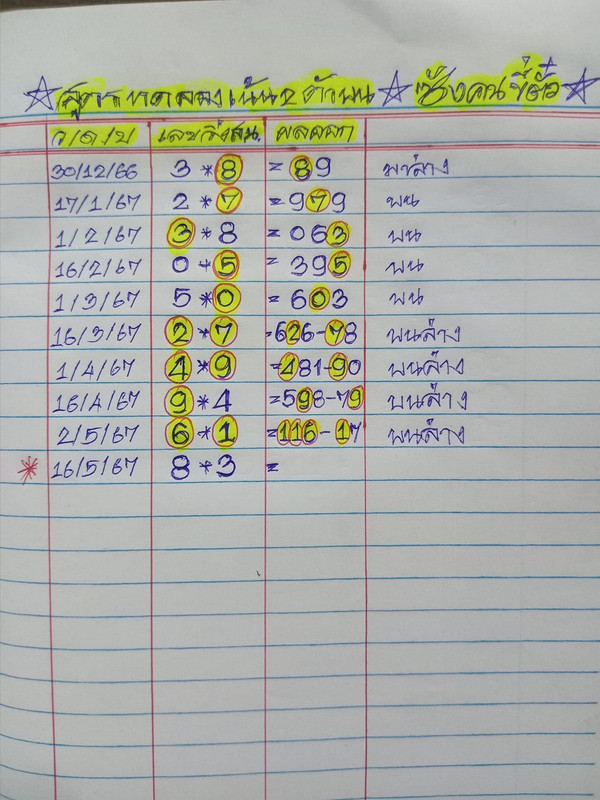 ☆ สูตรทดลองเน้น2ตัวบน ☆ ซ้งคนขี้ตั๋ว ☆
ว/ด/ป เลขวิ่งสน. ผลออก
30/12/66 3 * 8 = 89 มาล่าง
17/1/67 2 * 7 = 979 บน
1/2/67 3 * 8 = 063 บน
16/2/67 0 + 5 = 395 บน
1/3/67 5 * 0 = 603 บน
16/3/67 2 * 7 = 626-78 บนล่าง
1/4/67 4 * 9 = 481-90 บนล่าง
16/4/67 9 * 4 = 598-79 บนล่าง
2/5/67 6 * 1 = 116-17 บนล่าง
* 16/5/67 8 * 3 =